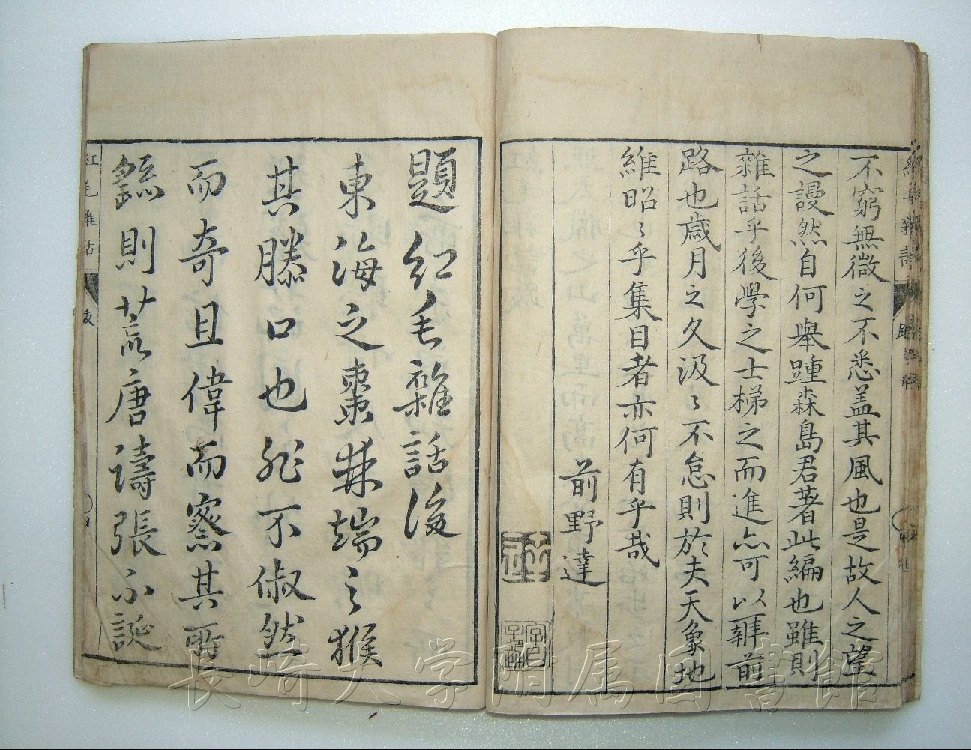 不窮無微之不悉盖其風也是故人之望
之謾然自何舉踵森島君著此編也雖則
雜話乎後學之士梯之而進亦可以
路也歳月之久汲〻不怠則於夫天象地
維昭〻乎集目者亦何有乎哉
前野達
題紅毛雜話後
東海之棗棘端之猴
其勝口也非不俶然
而奇且偉而察其所
繇則荒唐譸張不誕
紅毛雜話
跋
長崎大学附属図書館